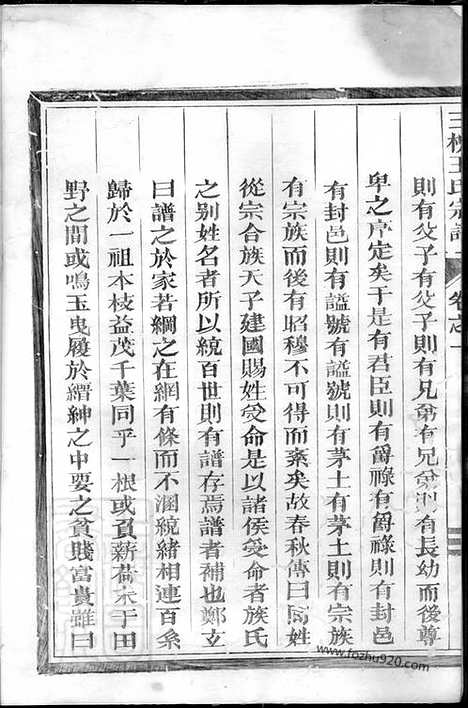 三槐王氏宗譜 卷之一
則有父子有父子則有兄弟有兄弟則有長幼而後尊
卑之序定矣于是有君臣則有爵祿有爵祿則有封邑
有封邑則有謚號有謚號則有茅土有茅土則有宗族
有宗族而後有昭穆不可得而紊矣故春秋傳曰同姓
從宗合族天子建國賜姓受命是以諸侯受命者族氏
之别姓名者所以統百世則有譜存焉譜者補也鄭玄
曰譜之於家若綱之在網有條而不溷統緒相連百糸
歸於一祖本枝益茂千葉同乎一根或負薪荷朩于田
野之間或鳴玉曳履於縉紳之中要之貧賤富貴雖曰
www.fozhu920.com